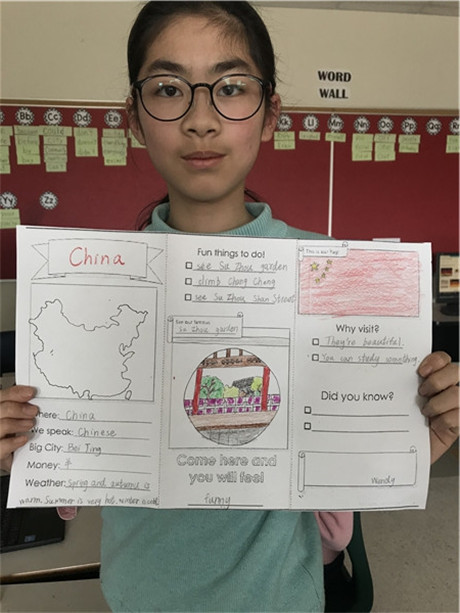 WORD
WALL
Bb Cc Dd Ee Kk Ll Mm Nn Oo Pp Qq
Zz
China
Where: China
We speak: Chinese
Big City: Bei Jing
Money: 
Weather: Spring and autumn a
warm, Summer is very hot, winter is cold
Fun things to do!
see Su Zhou garden
climb Chang Cheng
see Su Zhou Shan Street
Su Zhou garden
Come here and
you will feel
funny
This is our flag!
Why visit?
They're beautiful.
You can study something
Did you know?
Wendy